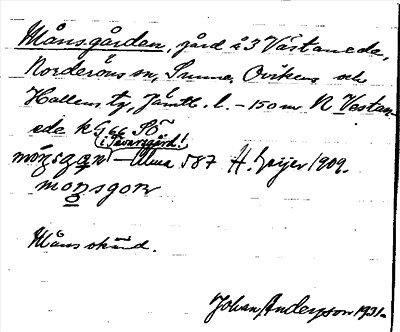 Månsgården, gård i 3 Västanede,
Norderöns sn, Sunne, Ovikens och
Hallens tg, Jämtl. l. – 150 m N Vestan-
ede k G 66 Sö
i Tavaregård!
månsgan – Alma 587 H. Geijer 1909.
monsgon
Måns okänd.
Johan Anderson 1931.